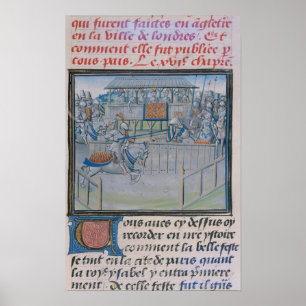 qui furent faictes en āgletere
en la ville de londres. Et
comment elle fut publiee p
tous pais. Le xviie chapre.
Vous aues cy dessus oy
recorder en nre ystoire
comment la belle feste
se tint en la cite de paris quant
la royne ysabel y entra p'miere
ment de celle feste fut il gñs